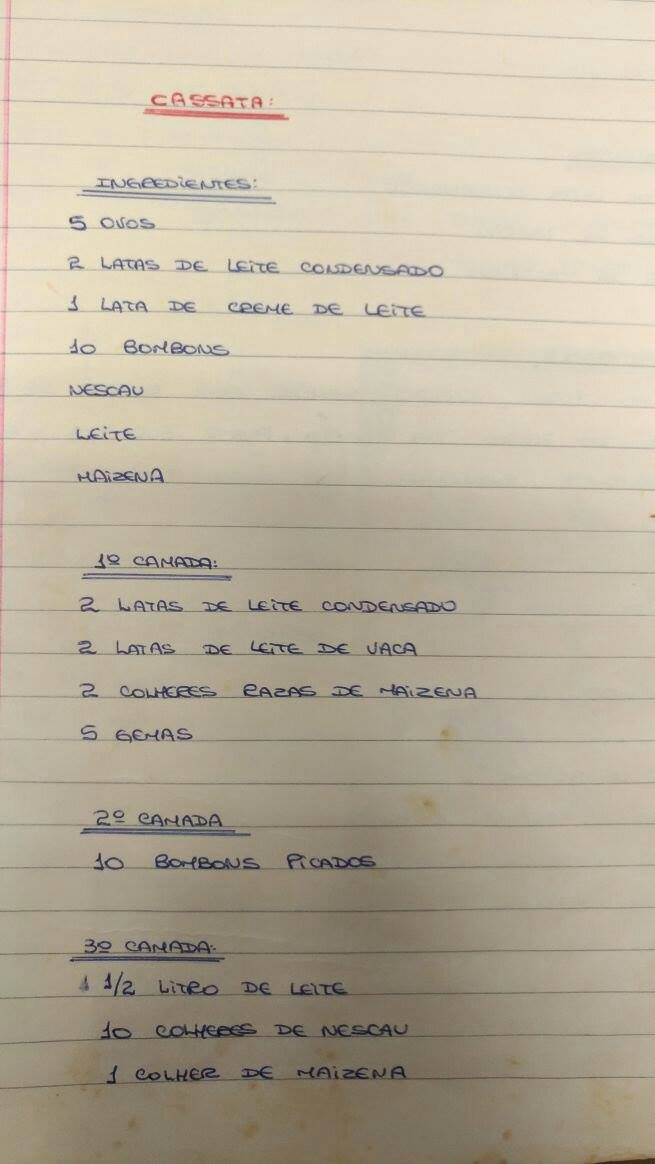 CASSATA:
INGREDIENTES:
5 OVOS
2 LATAS DE LEITE CONDENSADO
1 LATA DE CREME DE LEITE
10 BOMBONS
NESCAU
LEITE
MAIZENA
1º CAMADA:
2 LATAS DE LEITE CONDENSADO
2 LATAS DE LEITE DE VACA
2 COLHERES RAZAS DE MAIZENA
5 GEMAS
2º CAMADA
10 BOMBONS PICADOS
3º CAMADA:
1 1/2 LITRO DE LEITE
10 COLHERES DE NESCAU
1 COLHER DE MAIZENA